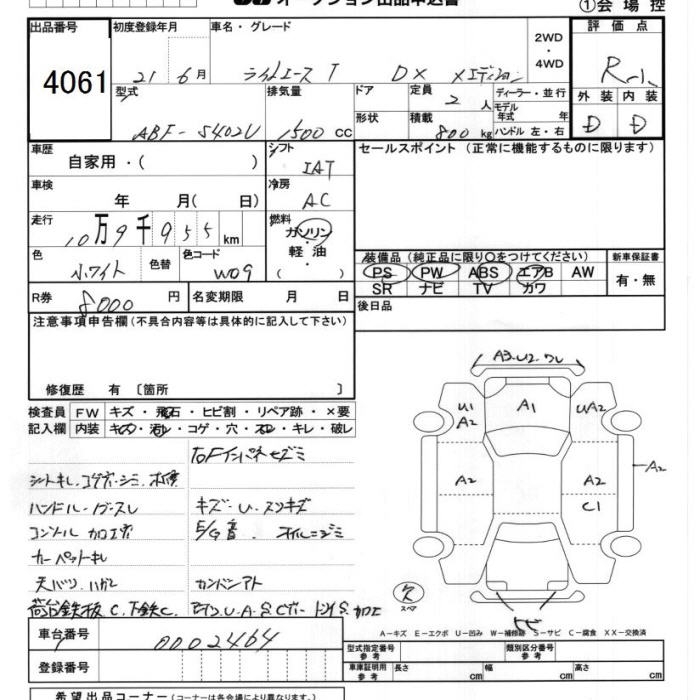 オークション出品申込書
①会場控
出品番号
4061
初度登録年月
21 6 月
車名・グレード
ライトエース T DX Xエディション
2WD
・
4WD
評価点
R-1
外装 内装
D D
型式
ABF-S402U
排気量
1500 cc
ドア
形状
定員
2 人
積載
800 kg
ディーラー・並行
モデル
年式 年
ハンドル 左・右
車歴
自家用・( )
シフト
IAT
車検
年 月( 日)
冷房
AC
走行
10万9千955 km
燃料
ガソリン
・
軽油
・
( )
色
ホワイト
色替
色コード
W09
セールスポイント(正常に機能するものに限ります)
装備品(純正品に限り○をつけてください)
PS PW ABS エアB AW
SR ナビ TV カワ
新車保証書
有・無
R券
8000 円
名変期限 月 日
後日品
注意事項申告欄(不具合内容等は具体的に記入して下さい)
修復歴 有 〔箇所 〕
検査員
記入欄
FW キズ・飛石・ヒビ割・リペア跡・×要
内装 キズ・汚レ・コゲ・穴・スレ・キレ・破レ
右Fインパネキズミ
ハンドル・
キズ・U・スリキズ
E/G音 オイルニジミ
カーペットキレ
天バリ・ハガレ
荷台鉄板C、下鉄C、
加工
A3.U2.ワレ
A1
U1
A2
UA2
A2
A2
A2
C1
ス
スペア
A-キズ E-エクボ U-凹み W-補修跡 S-サビ C-腐食 XX-交換済
車台番号
0002464
登録番号
型式指定番号
参考
類別区分番号
参考
車庫証明用
参考
長さ cm
幅 cm
高さ cm
希望出品コーナー(コーナーは各会場により異なります。)